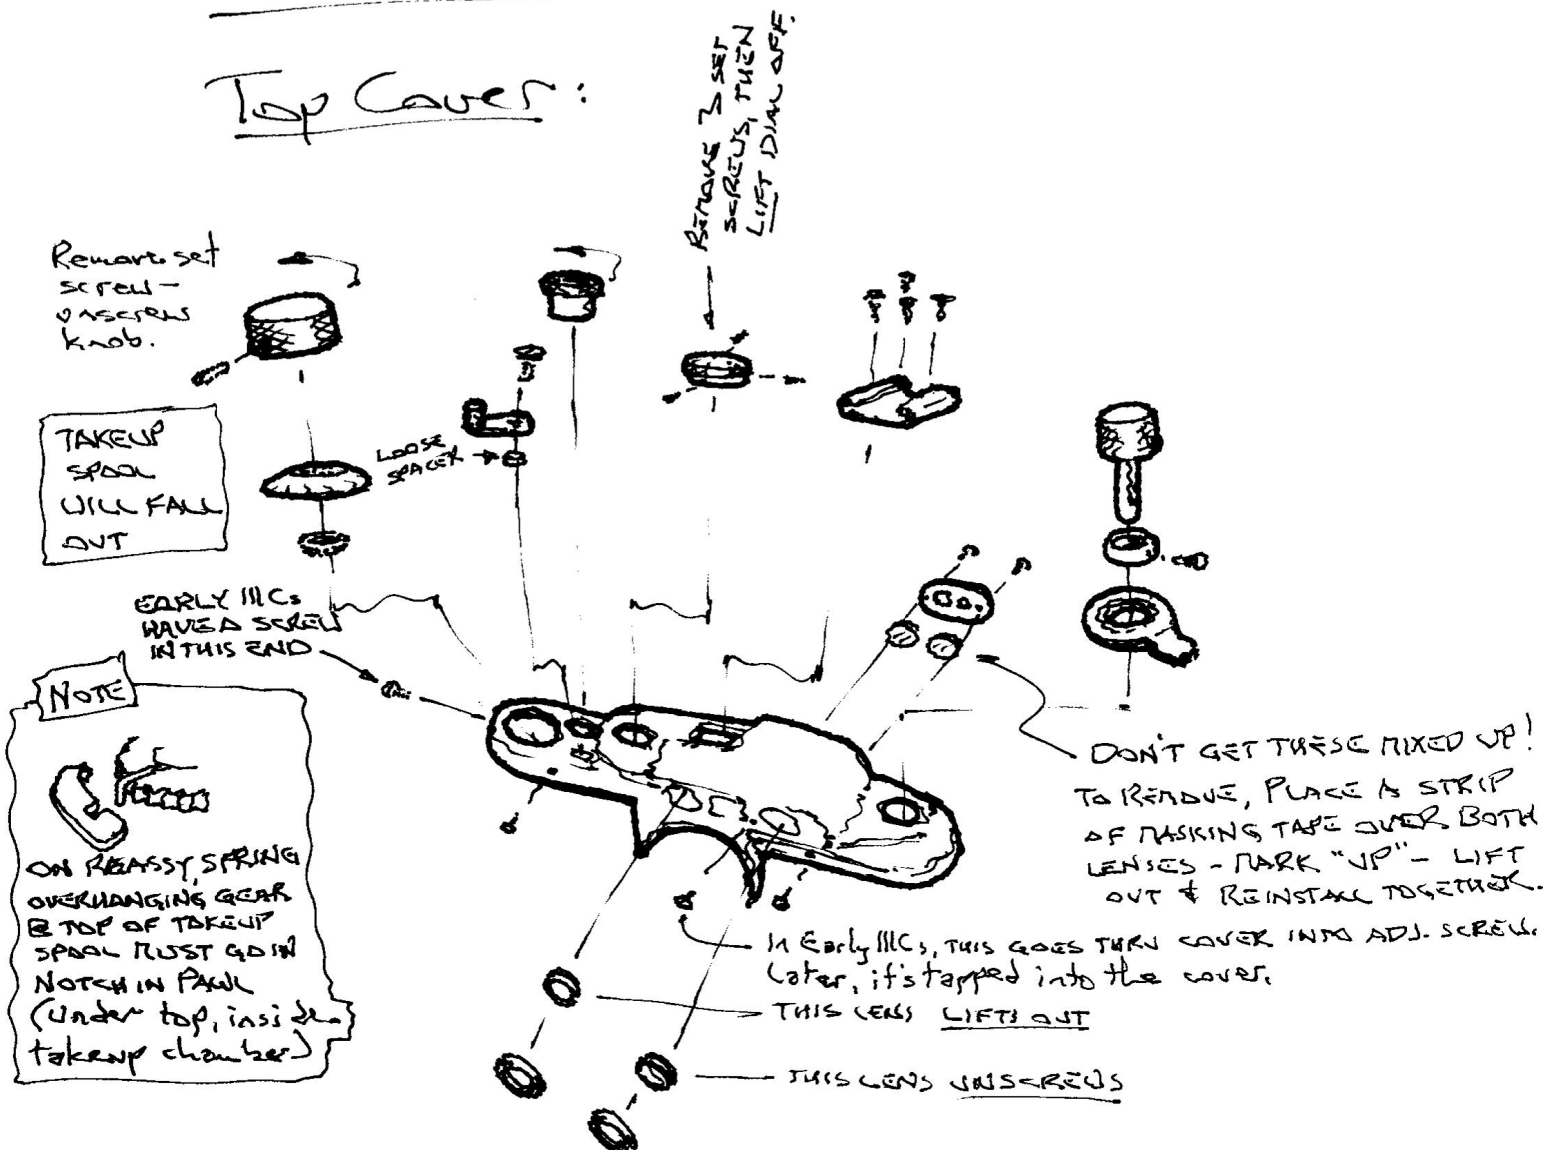 Top Cover:
REMOVE 3 SET
SCREWS, THEN
LIFT DIAL OFF.
Remove set
screw-
unscrew
knob.
TAKEUP
SPOOL
WILL FALL
OUT
LOOSE
SPACER
EARLY IIICs
HAVE A SCREW
IN THIS END
NOTE
ON REASSY, SPRING
OVERHANGING GEAR
@ TOP OF TAKEUP
SPOOL MUST GO IN
NOTCH IN PAWL
(under top, inside
takeup chamber)
DON'T GET THESE MIXED UP!
TO REMOVE, PLACE A STRIP
OF MASKING TAPE OVER BOTH
LENSES - MARK "UP" - LIFT
OUT & REINSTALL TOGETHER.
In Early IIICs, THIS GOES THRU COVER INTO ADJ. SCREW.
Later, it's tapped into the cover.
THIS LENS LIFTS OUT
THIS LENS UNSCREWS